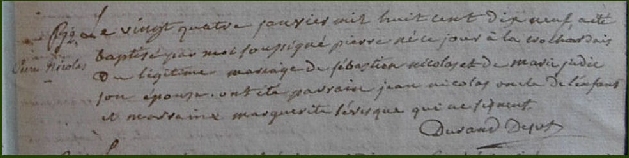 Le vingt quatre janvier mil huit cent dix neuf a été
Pierre Nicolas
baptisé par moi soussigné pierre né ce jour à la
du légitime mariage de sébastien nicolas et de marie
son épouse. ont été parrain jean nicolas oncle de l'enfant
et marraine marguerite lévesque qui ne signent
Durand